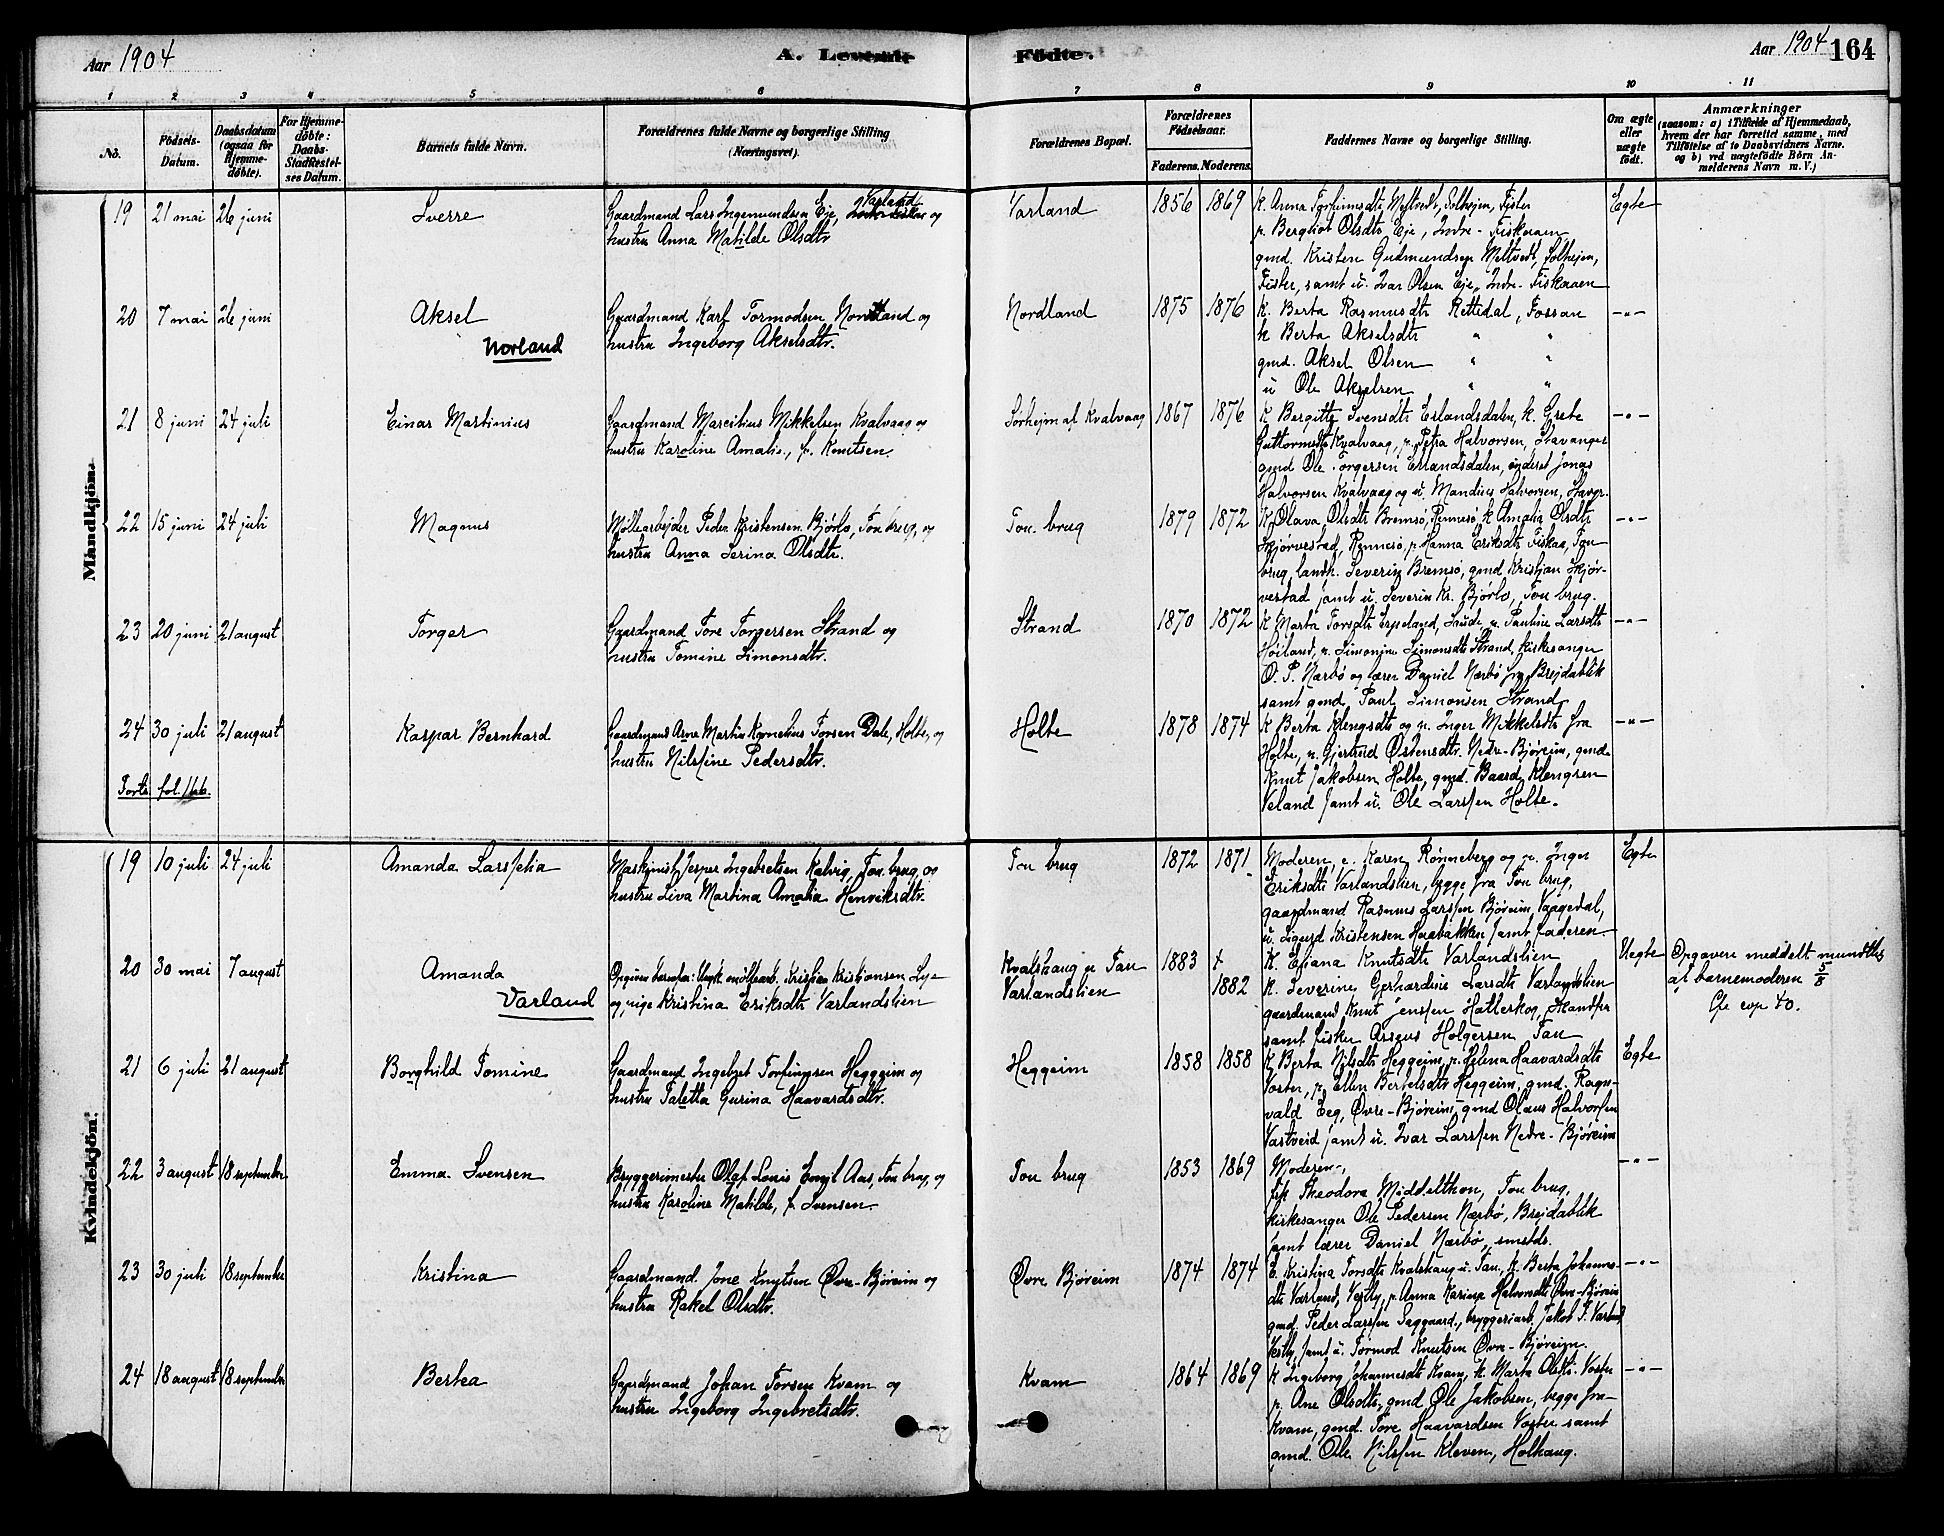 Aar 1904
A. Levende
Fødte.
Aar 1904 164
1 2 3 4 5 6 7 8 9 10 11
No.
Fødsels-Datum.
Daabsdatum (ogsaa for Hjemme-døbte).
For Hjemme-døbte: Daabs-Stadfæstel-ses Datum.
Barnets fulde Navn.
Forældrenes fulde Navne og borgerlige Stilling (Næringsvei).
Forældrenes Bopæl.
Forældrenes Fødselsaar.
Faderens. Moderens.
Faddernes Navne og borgerlige Stilling.
Om ægte eller uægte født.
Anmærkninger (saasom: a) i Tilfælde af Hjemmedaab, hvem der har forrettet samme, med Tilføielse af to Daabsvidners Navne. og b) ved uægtefødte Børn An-melderens Navn m. V.)
Mandkjøn.
19 21 mai 26 juni Sverre
Gaardmand Lars Ingemundsen Eje, Varland og
hustru Anna Matilde Olsdtr
Varland 1856 1869
K. Anna Torheimsdtr Meltvedt, Solhejm, Fister
p. Bergliot Olsdtr Eje, Indre-Fiskaaen
gmd. Kristen Gudmundsen Meltvedt, Solhejm,
Fister, samt u. Ivar Olsen Eje, Indre-Fiskaaen
Egte
20 7 mai 26 juni Aksel
Norland
Gaardmand Karl Tormodsen Nordland og
hustru Ingeborg Akselsdtr.
Nordland 1875 1876
K. Berta Rasmusdtr Rettedal, Fossan
k Berta Akselsdtr " "
gmd. Aksel Olsen " "
u Ole Akselsen " "
-"-
21 8 juni 24 juli Einar Martinius
Gaardmand Marcelius Mikkelsen Kvalvaag og
hustru Karoline Amalie, f. Knutsen.
Sørhejm af Kvalvaag 1867 1876
K Bergitte Svensdtr Erlandsdalen, k. Grete
Guttormsdtr Kvalvaag, p. Petra Halvorsen, Stavanger
gmd Ole Torgersen Erlandsdalen, Jonas
Halvorsen Kvalvaag og u. Mandius Halvorsen, Stavgr.
-"-
22 15 juni 24 juli Magnus
Møllearbejder Peder Kristensen Bjørlo, Tou brug, og
hustru Anna Serina Olsdtr.
Tou brug 1879 1872
K Olava Olsdtr Bremsø, Rennesø k Amalia Olsdtr
Skjørvestad, Rennesø, p. Hanna Eriksdtr Fiskaa, Tou
brug, landh. Severin Bremsø, gmd Kristian Skjør-
vestad samt u. Severin Kr. Bjørlo, Tou brug.
-"-
23 20 juni 21 august Torger
Gaardmand Tore Torgersen Strand og
hustru Tomine Simonsdtr.
Strand 1870 1872
K Marta Torsdtr Erseland, Sande, p. Pauline Larsdtr
Høiland, p. Simonine Simonsdtr Strand, kirkesanger
O. P. Nærbø og lærer Daniel Nærbø fra Brejdablik
samt gmd. Paul Simonsen Strand
-"-
24 30 juli 21 august Kaspar Bernhard
Gaardmand Arne Martin Kornelius Torsen Dale, Holte, og
hustru Nilssine Pedersdtr.
Holte 1878 1874
K Berta Klengsdtr og p. Inger Mikkelsdtr fra
Holte, p. Gjertrud Østensdtr. Nedre-Bjøreim, gmd.
Knut Jakobsen Holte, gmd. Baard Klengsen
Veland samt u. Ole Larssen Holte.
-"-
Forts. fol. 166.
Kvindekjøn.
19 10 juli 24 juli Amanda Larsselia
Maskinist Jesper Ingebretsen Kalvig, Tou brug, og
hustru Liva Martina Amalia Henriksdtr.
Tou brug 1872 1871
Moderen, e. Karen Rønneberg og p. Inger
Eriksdtr Varlandslien, begge fra Tou brug,
gaardmand Rasmus Larssen Bjøreim, Vaagedal,
u. Sigurd Kristensen Haabakken samt faderen
Egte
20 30 mai 7 august Amanda
Varland
Opgiven barnefar: Kristian Kristiansen
og pige Kristina Eriksdtr Varlandslien
Kvalshaug u Tau
Varlandslien
1883 +
1882
K. Eliana Knutsdtr Varlandslien
K. Severine Gerhardine Larsdtr Varlandslien
gaardmand Knut Jenssen Hatleskog,
samt fisker Holgersen Tau
Uegte
Opgaven meddelt mundtlig
af barnemoderen 5/8
21 6 juli 21 august Borghild Tomine
Gaardmand Ingebret Torfinnsen Heggeim og
hustru Taletta Gurina Haavardsdtr.
Heggeim 1858 1858
K Berta Nilsdtr Heggeim, p. Helena Haavardsdtr
Voster, p. Ellen Bertelsdtr Heggeim, gmd. Ragn-
vald Eeg, Øvre-Bjøreim, gmd Olaus Halvorsen
Vastveid samt u. Ivar Larssen Nedre-Bjøreim
Egte
22 3 august 18 september Emma Svensen
Bryggerimester Olaf Louis Emil Aas, Tou brug, og
hustru Karoline Matilde, f. Svensen.
Tou brug 1853 1869
Moderen,
frk Theodora Middelthon, Tou brug,
kirkesanger Ole Pedersen Nærbø, Brejdablik
samt lærer Daniel Nærbø, smstds.
-"-
23 30 juli 18 september Kristina
Gaardmand Jone Knutsen Øvre-Bjøreim og
hustru Rakel Olsdtr.
Øvre Bjøreim 1874 1874
E. Kristina Torsdtr Kvalshaug u. Tau, K. Berta Johannes-
dtr Varland, Vestly, p. Anna Karine Halvorsdtr Øvre-Bjøreim
gmd. Peder Larssen Saggaard, bryggeriarb. Jakob T. Varland
Vestly, samt u. Tormod Knutsen Øvre-Bjøreim.
-"-
24 18 august 18 september Bertea
Gaardmand Johan Torsen Kvam og
hustru Ingeborg Ingebretsdtr.
Kvam 1864 1869
K Ingeborg Johannesdtr Kvam, k. Marta Olsdtr. Voster
p. Ane Olsdtr, gmd Ole Jakobsen, begge fra
Kvam, gmd. Tore Haavardsen Voster samt
gmd. Ole Nilssen Kleven, Holhaug.
-"-